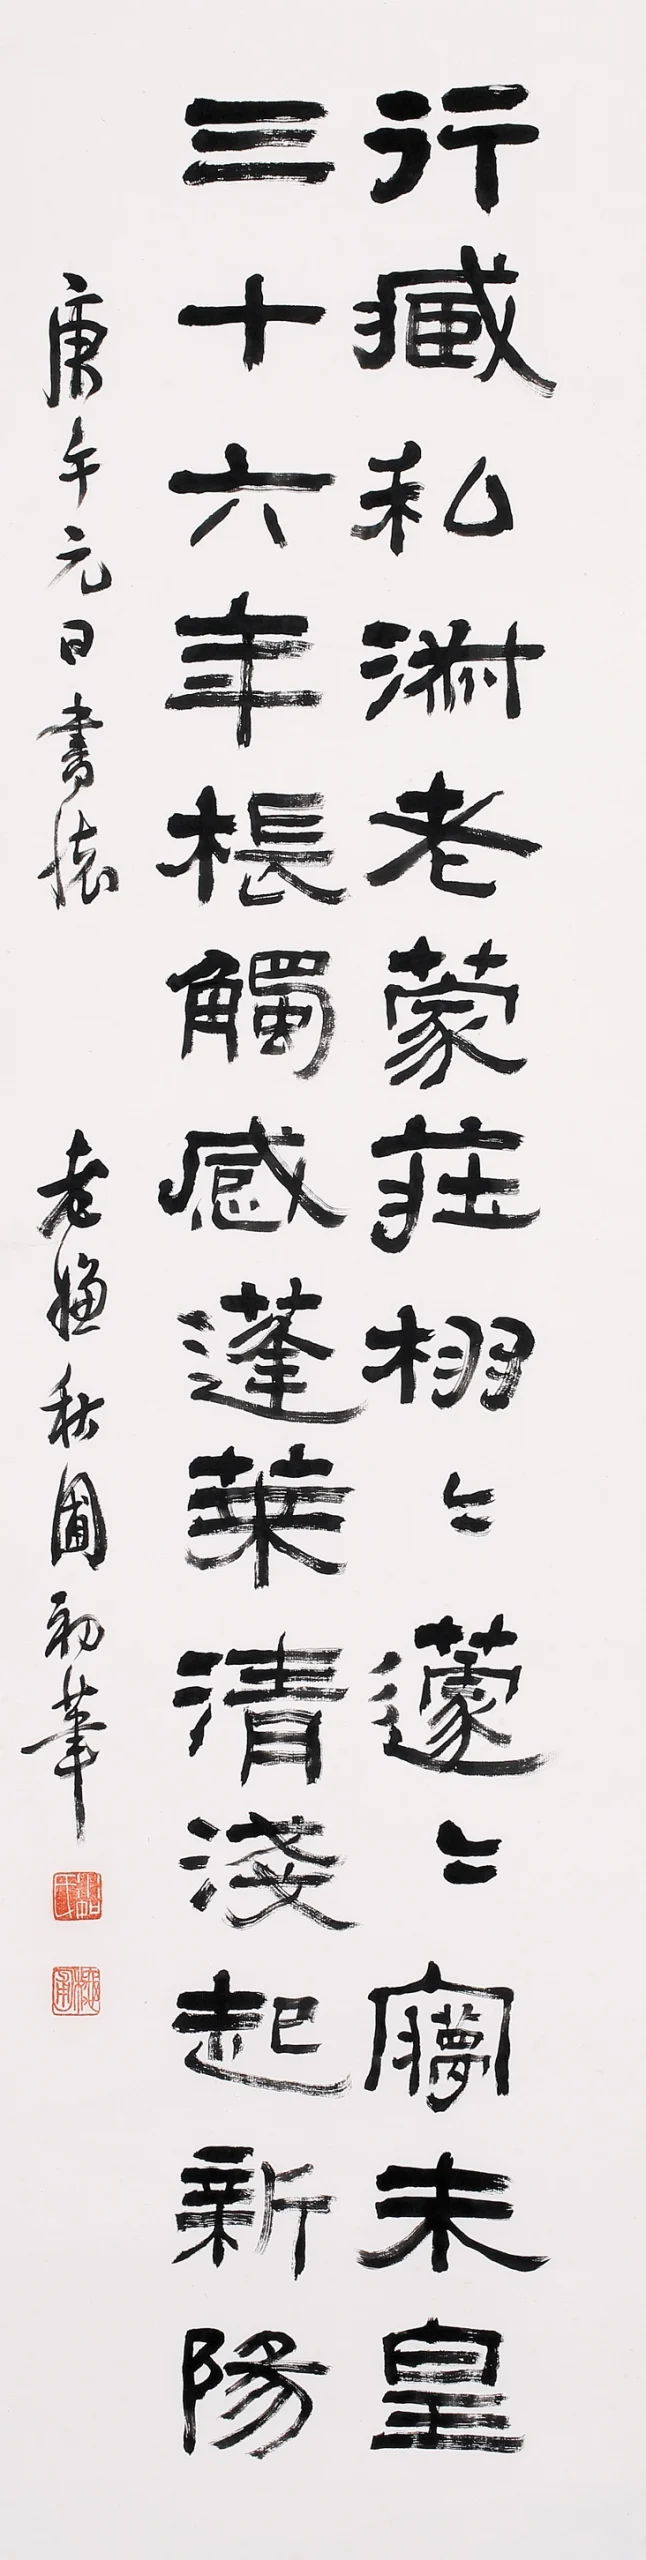 行藏私淑老蒙莊栩〻蘧〻寱未皇
三十六年棖觸感蓬萊清淺起新陽
庚午元日書懷
老漁秋圃初華